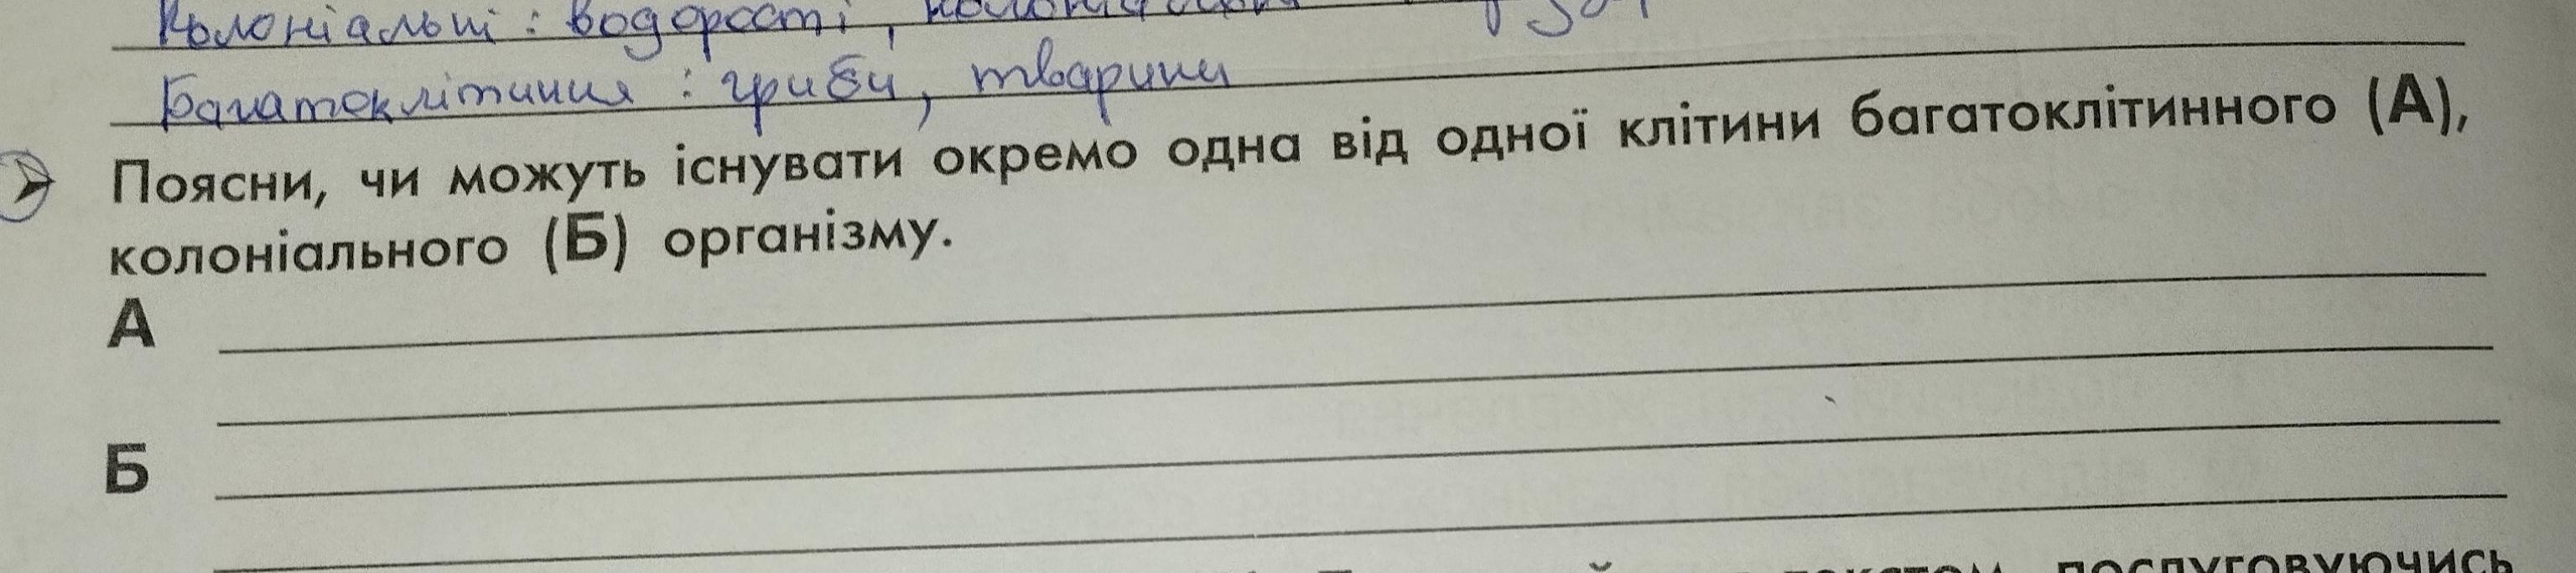 Колоніальні : водорості,
Багатоклітинні : гриби, тварини
Поясни, чи можуть існувати окремо одна від одної клітини багатоклітинного (А),
колоніального (Б) організму.
А
Б
послуговуючись